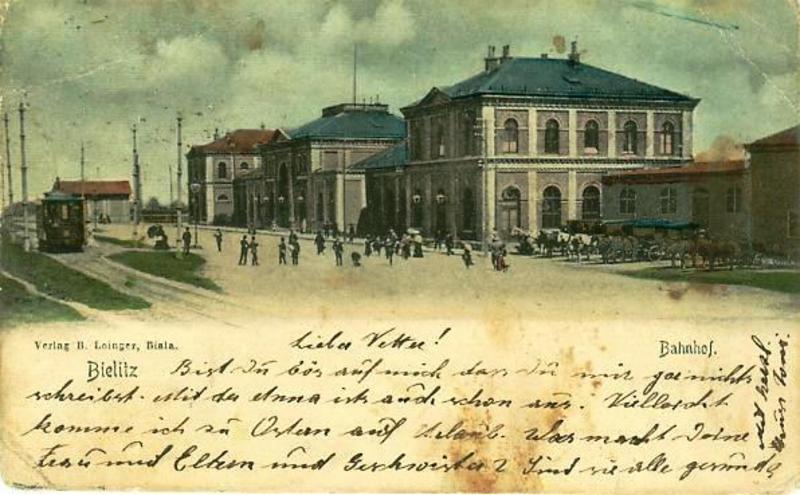 Verlag B. Loinger, Biala.
Bielitz
Bahnhof.
Lieber Vetter!
Bist Du bös auf mich das Du mir gar nichts
schreibst. Mit der Anna ist auch schon aus. Vielleicht
komme ich zu Ostern auf Urlaub. Was macht Deine
Frau und Eltern und Geschwister? Sind sie alle gesund